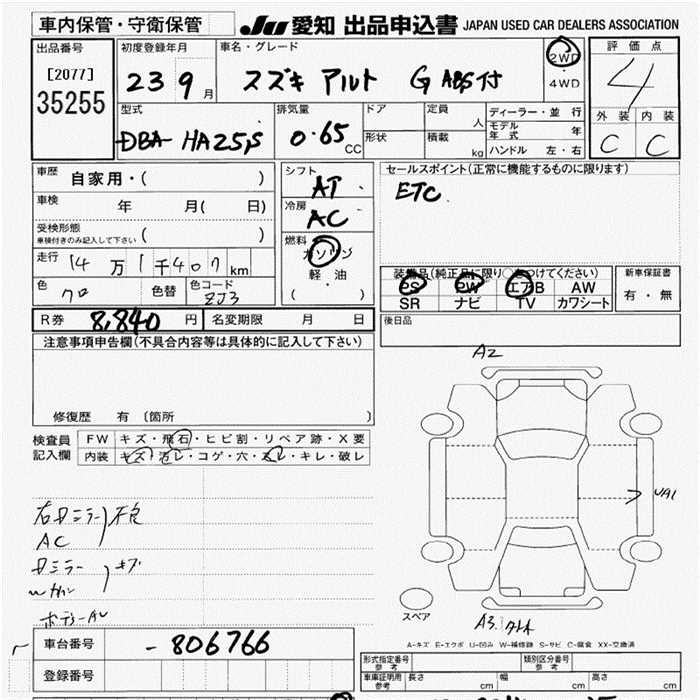 車内保管・守衛保管
JU 愛知 出品申込書 JAPAN USED CAR DEALERS ASSOCIATION
出品番号
[2077]
35255
初度登録年月
23 9 月
車名・グレード
スズキ アルト G ABS付
2WD
・
4WD
評価点
4
外装 内装
C C
型式
DBA-HA25S
排気量
0.65 CC
ドア
形状
定員 人
積載 kg
ディーラー・並行
モデル年式 年
ハンドル 左・右
車歴 自家用・( )
車検 年 月( 日)
受検形態
車検付きのみ記入して下さい ( )
走行 14万1千407km
色 クロ 色替 色コード ZJ3
シフト
AT
冷房
AC
燃料
ガソリン
軽・油
( )
セールスポイント(正常に機能するものに限ります)
ETC
装備品(純正品に限り○をつけてください)
PS PW エアB AW
SR ナビ TV カワシート
新車保証書
有・無
R券 8,840 円 名変期限 月 日
後日品
注意事項申告欄(不具合内容等は具体的に記入して下さい)
修復歴 有 〔箇所
検査員
記入欄
FW キズ・飛石・ヒビ割・リペア跡・X要
内装 キズ・汚レ・コゲ・穴・スレ・キレ・破レ
右ミラー 不良
AC
ミラー キズ
A2
UA1
スペア
A3
A-キズ E-エクボ U-凹み W-補修跡 S-サビ C-腐食 XX-交換済
車台番号 -806766
登録番号
形式指定番号
参考
類別区分番号
参考
車庫証明用
参考
長さ cm 幅 cm 高さ cm